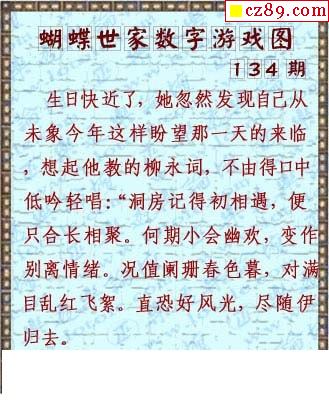 cz89.com
蝴蝶世家数字游戏图
134期
生日快近了，她忽然发现自己从
未象今年这样盼望那一天的来临
，想起他教的柳永词，不由得口中
低吟轻唱：“洞房记得初相遇，便
只合长相聚。何期小会幽欢，变作
别离情绪。况值阑珊春色暮，对满
目乱红飞絮。直恐好风光，尽随伊
归去。